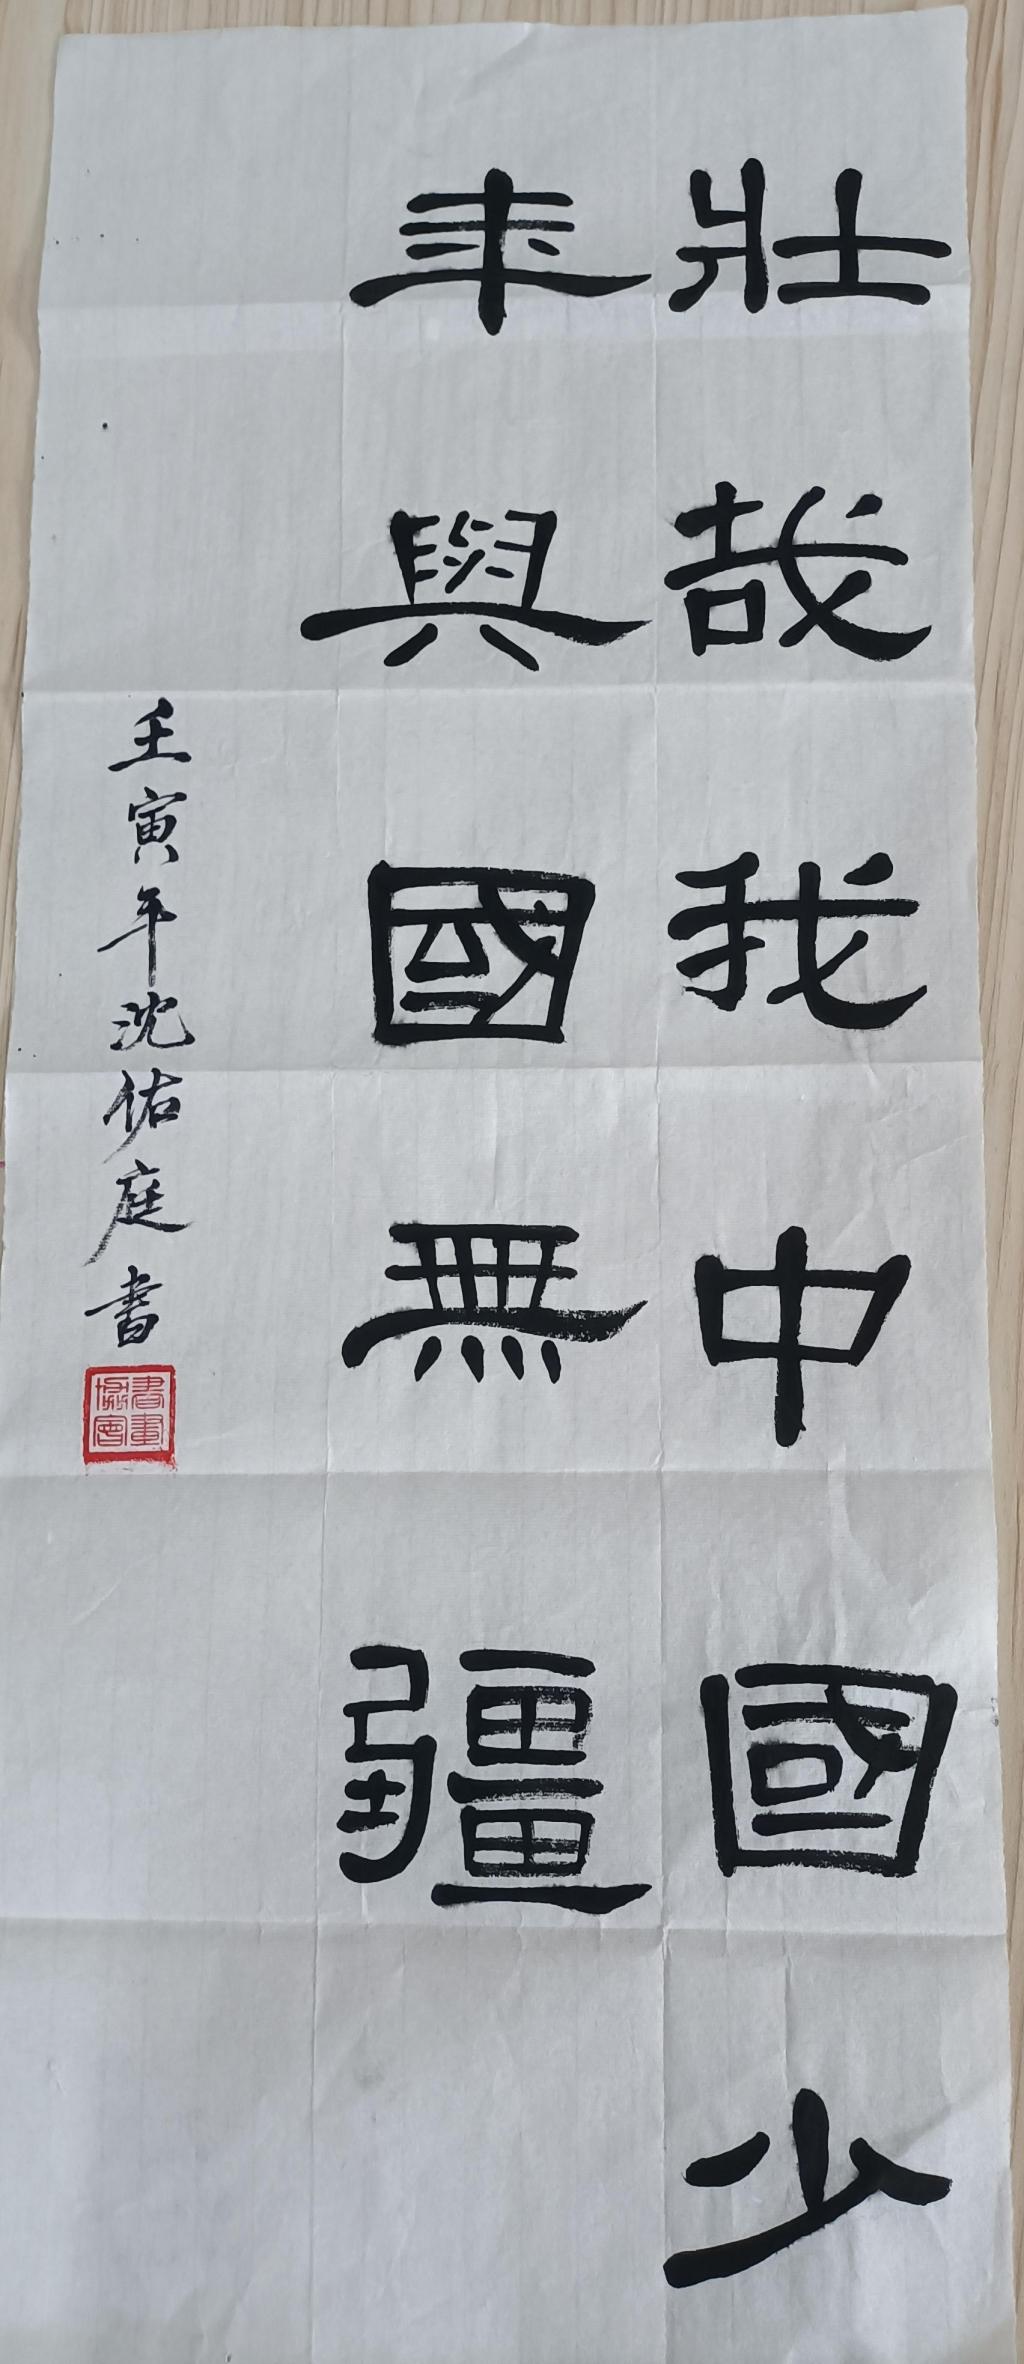 壯哉我中國少
年與國無疆
壬寅年沈佑庭書
書畫
協會